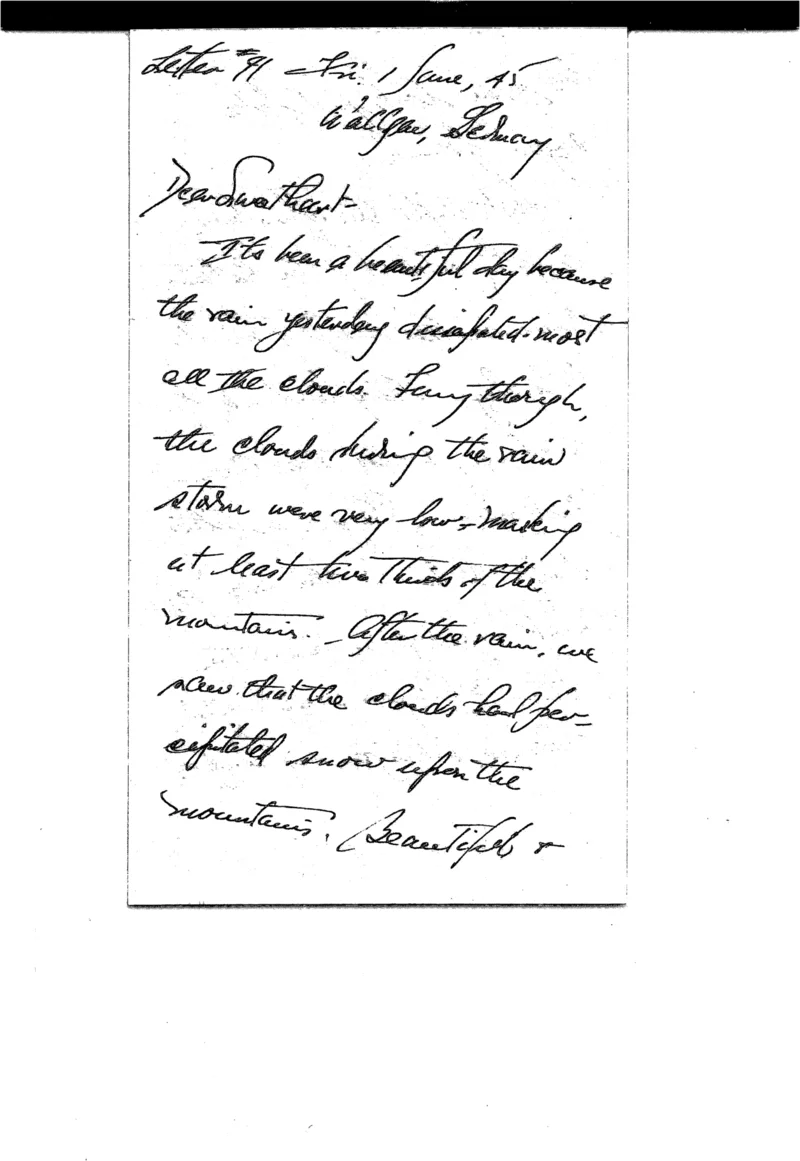 Letter #91 - Fri. 1 June, 45
Wallgau, Germany
Dear Sweetheart -
It's been a beautiful day because
the rain yesterday dissipated most
all the clouds. Funny though,
the clouds during the rain
storm were very low - masking
at least two thirds of the
mountains. - After the rain, we
saw that the clouds had per-
cipitated snow upon the
mountains. Beautiful &